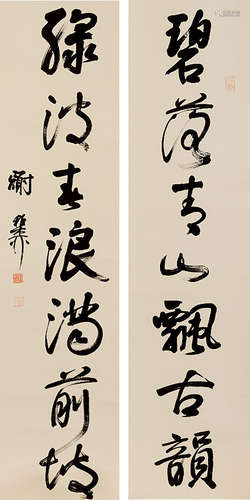 碧落青山飄古韻
綠波春浪滿前陂
謝